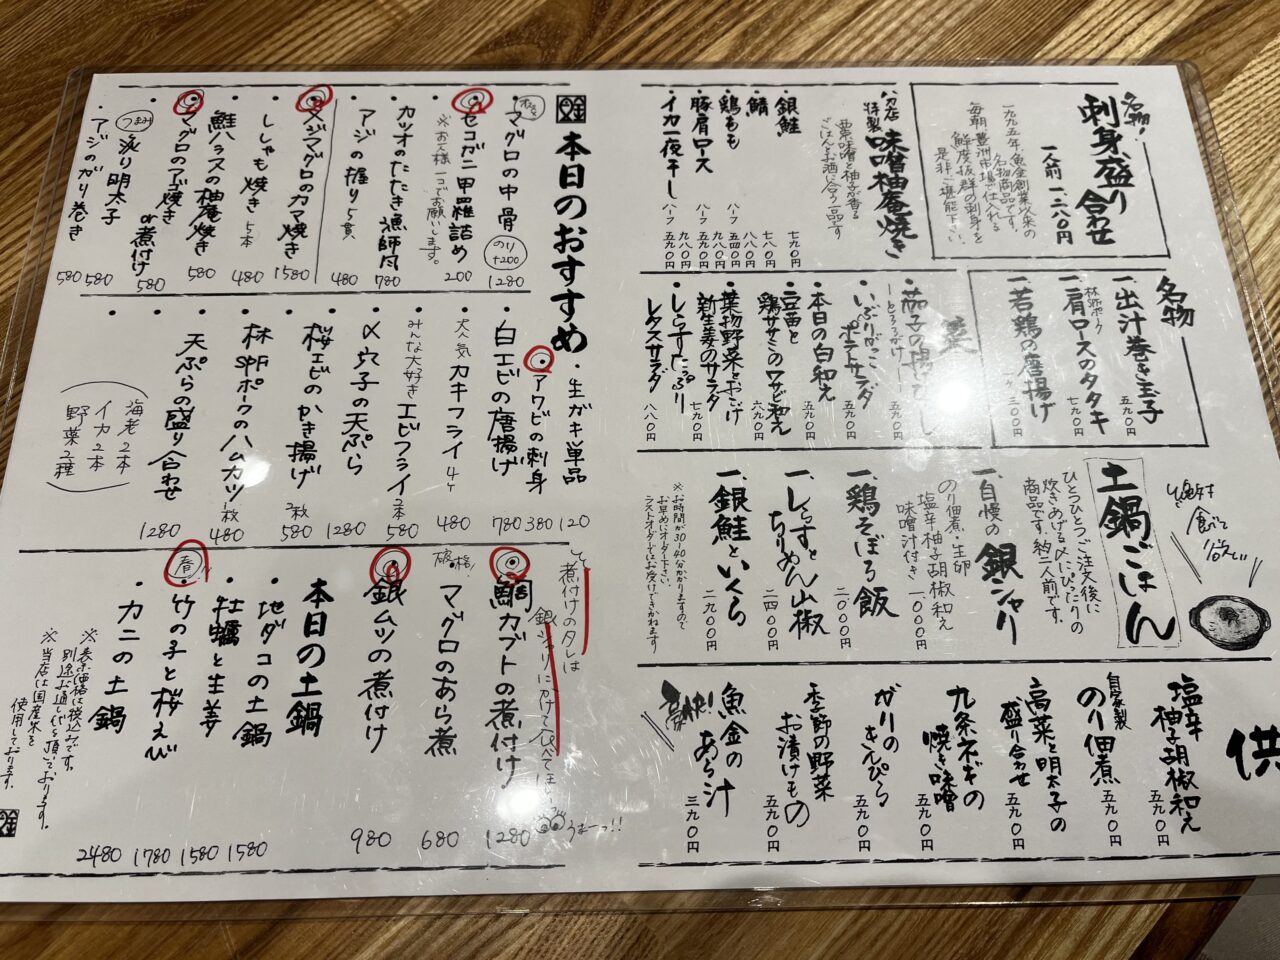 名物!
刺身盛り合わせ
一人前 一、二八〇円
一九九五年、魚金創業以来の
名物商品です。
毎朝豊洲市場で仕入れる
鮮度抜群の刺身を
是非ご堪能下さい。
特製
味噌柚庵焼き
西京味噌と柚子が香る
ごはんとお酒に合う一品です
銀鮭 七九〇円
鯖 七八〇円
鶏もも 八八〇円
ハーフ 五四〇円
豚肩ロース 九八〇円
ハーフ 五九〇円
イカ一夜干し 九八〇円
ハーフ 五九〇円
名物
一、出汁巻き玉子 五九〇円
一、林SPFポーク
肩ロースのタタキ 七九〇円
一、若鶏の唐揚げ 三〇〇円
菜
・茄子の揚げびたし
―とろろがけ― 五九〇円
・いぶりがっこ
ポテトサラダ 五九〇円
・本日の白和え 五九〇円
・豆苗と
鶏ササミのワサビ和え 六九〇円
・葉物野菜とおこげ
新生姜のサラダ 七九〇円
・しらすたっぷり
レタスサラダ 八八〇円
土鍋ごはん
ひとつひとつご注文後に
炊きあげる〆にぴったりの
商品です。約二人前です。
一、自慢の銀シャリ
のり佃煮・生卵
塩辛柚子胡椒和え
味噌汁付き 一〇〇〇円
一、鶏そぼろ飯 二〇〇〇円
一、しらすと
ちりめん山椒 二四〇〇円
一、銀鮭といくら 二九〇〇円
※お時間が30〜40分かかりますので
お早めにオーダー下さい。
ラストオーダーではお受けできかねます
供
塩辛
柚子胡椒和え 五九〇円
自家製
のり佃煮 五九〇円
高菜と明太子の
盛り合わせ 五九〇円
九条ネギの
焼き味噌 五九〇円
ガリの
きんぴら 五九〇円
季節の野菜
お漬けもの 五九〇円
魚金の
あら汁 三九〇円
本日のおすすめ
・マグロの中骨 1280
のり +200
・セコガニ甲羅詰め 200
※お一人様一コでお願いします。
・カツオのたたき漁師風 780
・アジの握り5貫 480
・メジマグロのカマ焼き 1580
・ししゃも焼き 5本 480
・鮭ハラスの柚庵焼き 580
・マグロのアゴ焼き or 煮付け 580
つまみ
・炙り明太子 580
・アジのがり巻き 580
・生ガキ単品 120
・アワビの刺身 380
・白エビの唐揚げ 780
・大人気 カキフライ 4ケ 480
・みんな大好き エビフライ 2本 580
・〆穴子の天ぷら 1280
・桜エビのかき揚げ 2枚 580
・林SPFポークのハムカツ 1枚 480
・天ぷらの盛り合わせ 1280
(海老2本
イカ2本
野菜2種)
煮付けのタレは
銀シャリにかけて
うまーっ!!
・鯛カブトの煮付け 1280
破格!
・マグロのあら煮 680
・銀ムツの煮付け 980
本日の土鍋
・地ダコの土鍋 1580
・牡蠣と生姜 1580
春
・竹の子と桜えび 1780
・カニの土鍋 2480
※表示価格は税込みです。
別途お通し代を頂いております。
※当店は国産米を
使用しております。